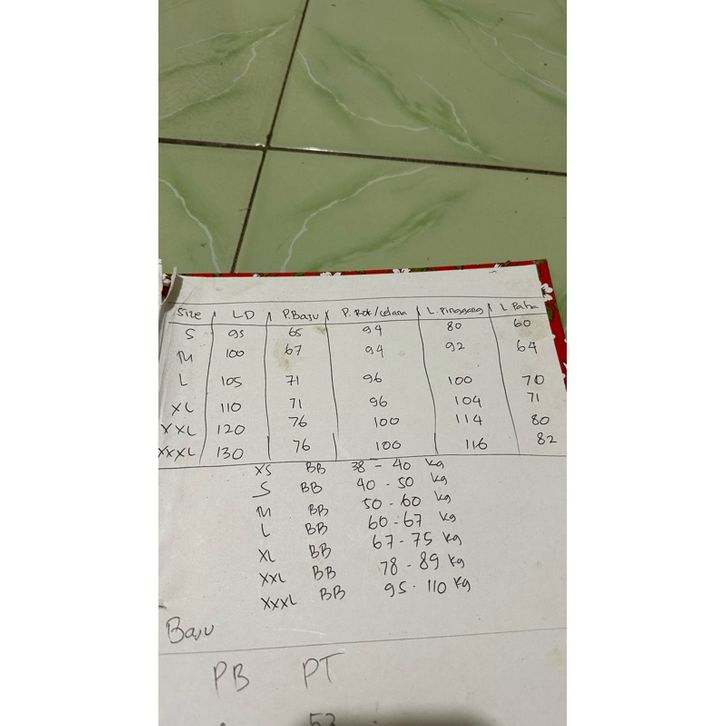 Size LD P.Baju P. Rok/celana L. Pinggang L Paha
S 95 65 94 80 60
M 100 67 94 92 64
L 105 71 96 100 70
XL 110 71 96 104 71
XXL 120 76 100 114 80
XXXL 130 76 100 116 82
XS BB 38 - 40 kg
S BB 40 - 50 kg
M BB 50 - 60 kg
L BB 60 - 67 kg
XL BB 67 - 75 kg
XXL BB 78 - 89 kg
XXXL BB 95 - 110 kg
Baju
PB PT
53